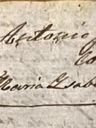 Antonio
Maria Ysab